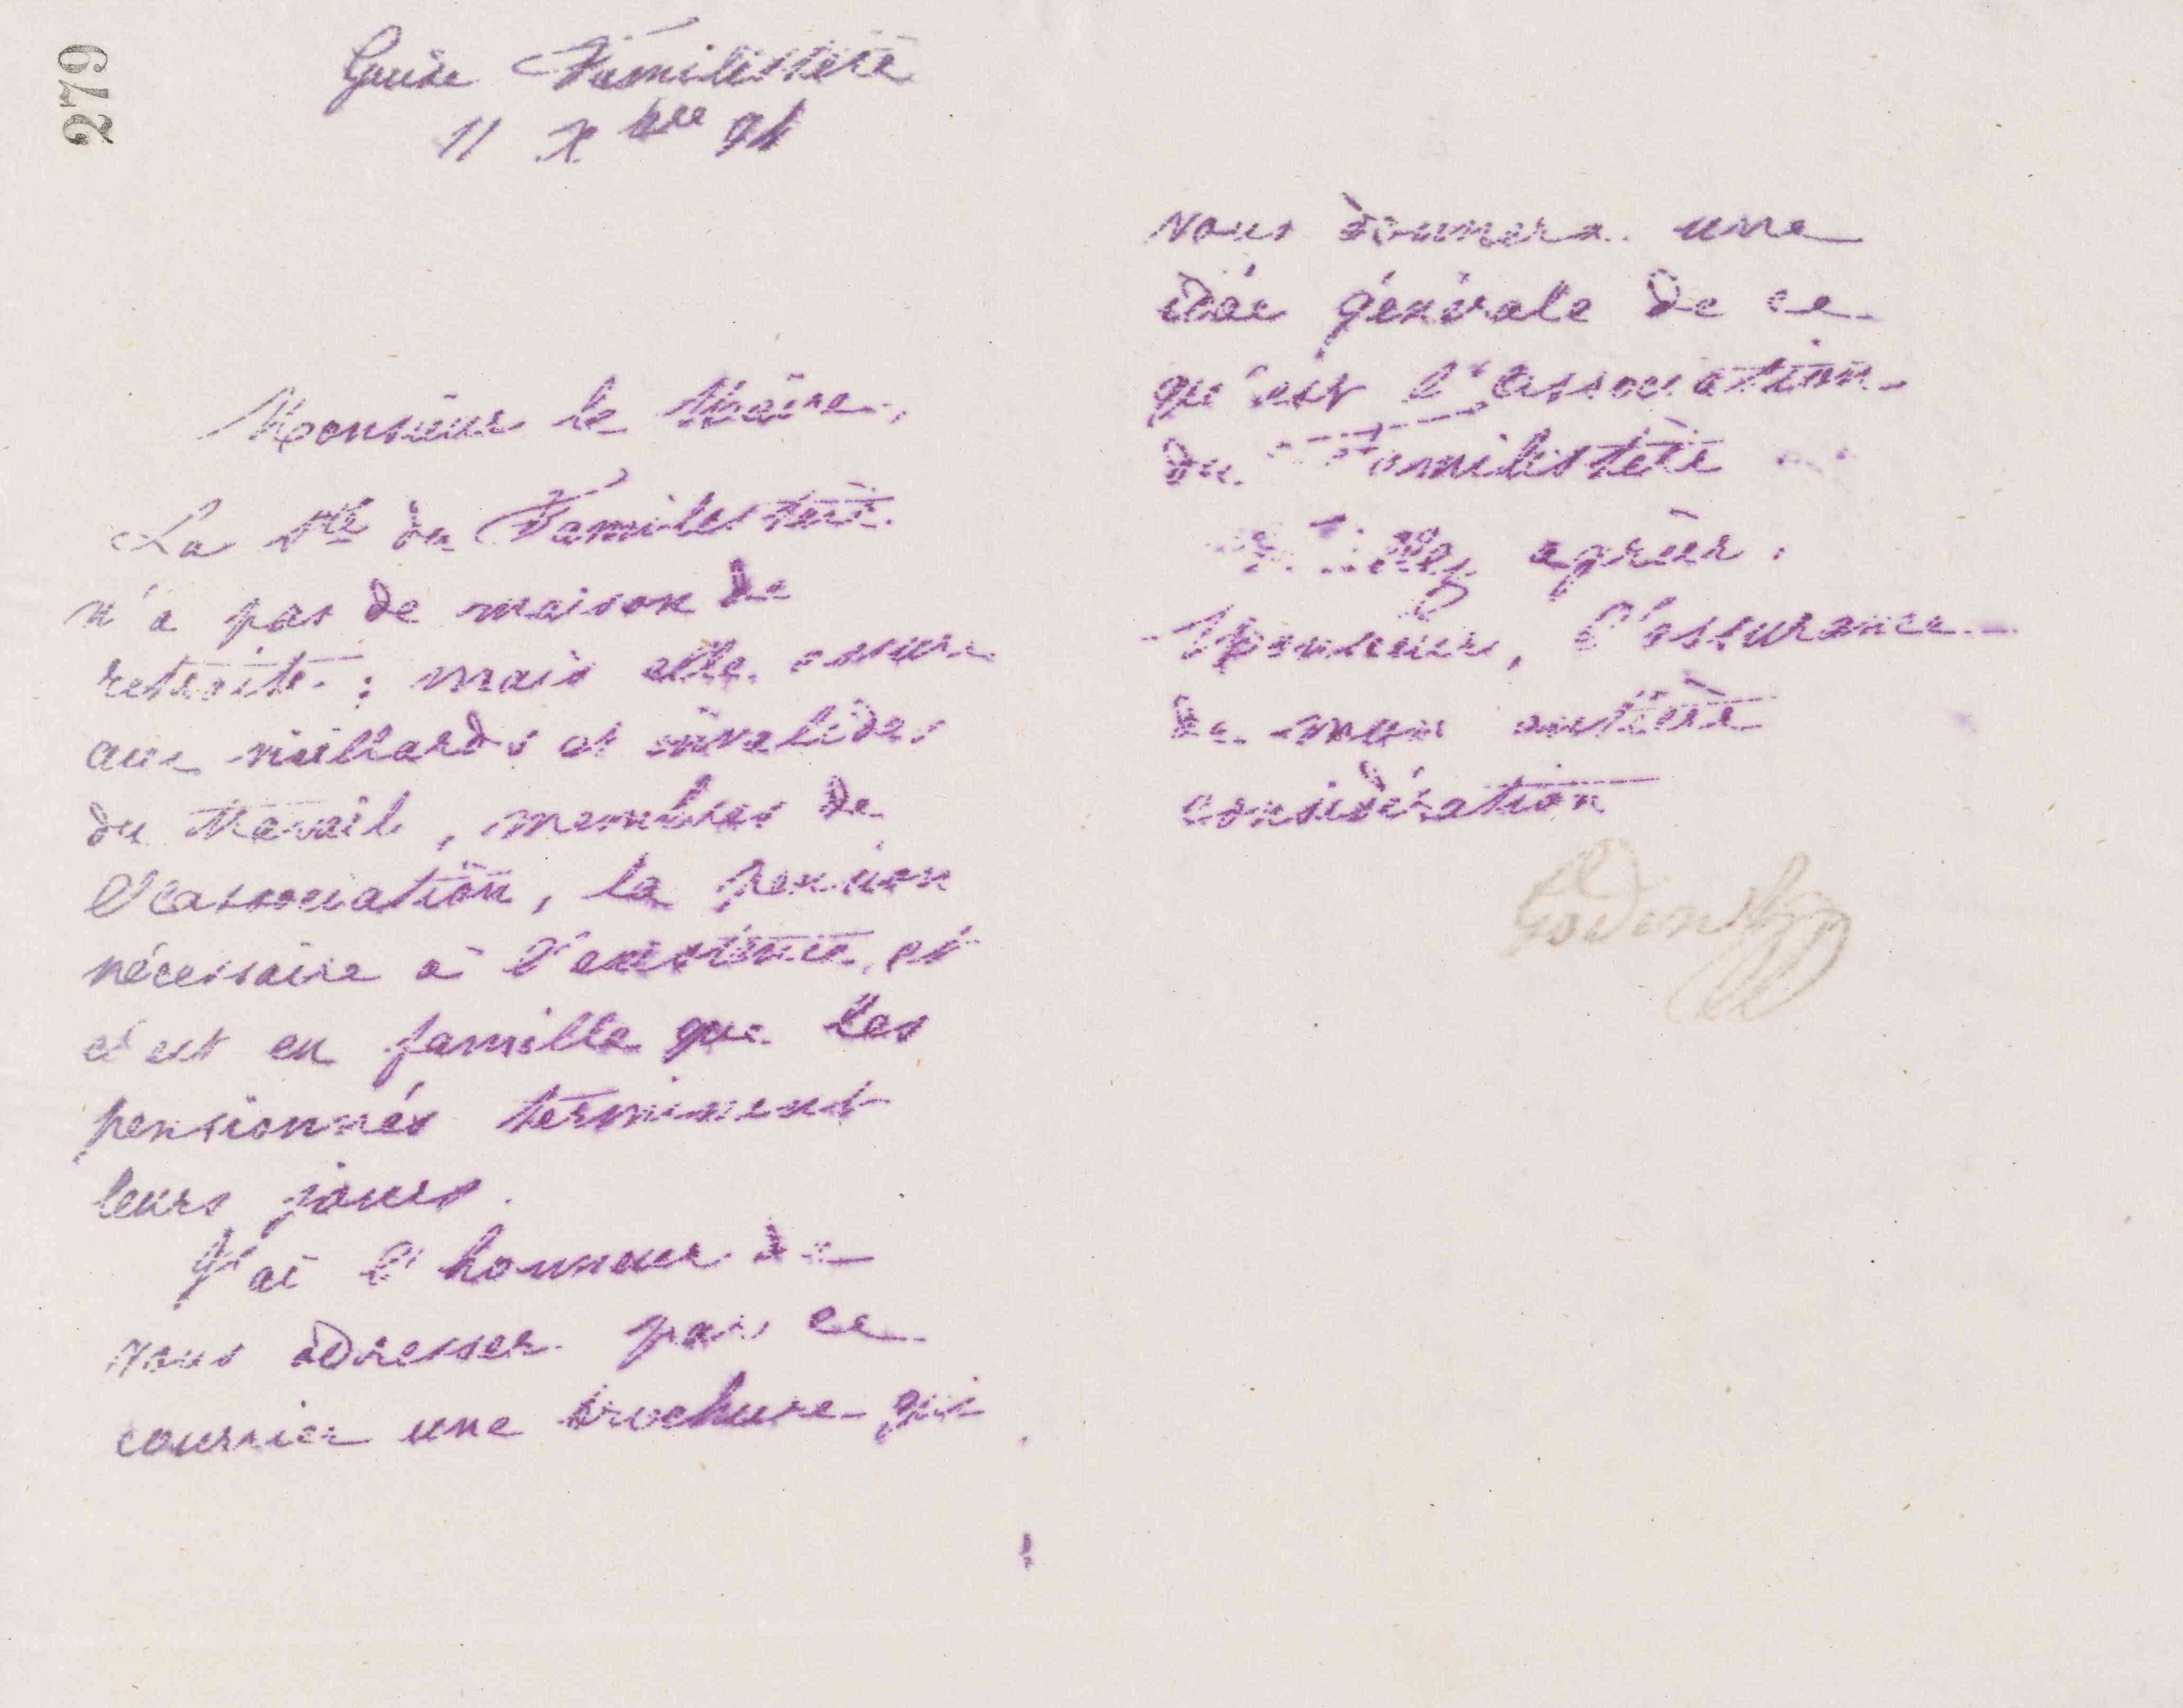 279
Guise Familistère
11 Xbre 91
Monsieur le Maire,
La Sté du Familistère
n'a pas de maison de
retraite ; mais elle assure
aux vieillards et invalides
du travail, membres de
l'association, la pension
nécessaire à l'existence, et
c'est en famille que les
pensionnés terminent
leurs jours.
J'ai l'honneur de
vous adresser par ce
courrier une brochure qui
vous donnera une
idée générale de ce
qu'est l'association
du Familistère
Veuillez agréer,
Monsieur, l'assurance
de mon entière
considération
Godin